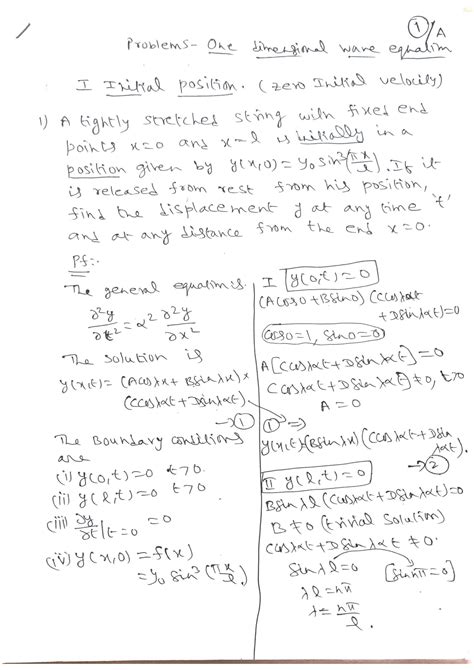 ① /A
Problems- One dimensional wave equation
I Initial position. (zero Initial velocity)
1) A tightly stretched string with fixed end
points x=0 and x=l is initially in a
position given by y(x,0)=y₀sin³(πx/l). If it
is released from rest from his position,
find the displacement y at any time 't'
and at any distance from the end x=0.
Pf:-
The general equation is
∂²y/∂t² = α² ∂²y/∂x²
The solution is
y(x,t)= (Acosλx+Bsinλx)×
(Ccosλαt+Dsinλαt)
→①
The Boundary conditions
are
(i) y(0,t)=0 t>0
(ii) y(l,t)=0 t>0
(iii) ∂y/∂t|t=0 =0
(iv) y(x,0)=f(x)
=y₀ sin³(πx/l).
I y(0,t)=0
(Acos0+Bsin0)(Ccosλαt
+Dsinλαt)=0
cos0=1, sin0=0
A[Ccosλαt+Dsinλαt]=0
Ccosλαt+Dsinλαt≠0, t>0
A=0
①⇒
y(x,t)=(Bsinλx)(Ccosλαt+Dsin
λαt).
→②
II y(l,t)=0
Bsinλl(Ccosλαt+Dsinλαt)=0
B≠0 (trivial solution)
Ccosλαt+Dsinλαt≠0.
sinλl=0 [sin nπ=0]
λl=nπ
λ=nπ/l.